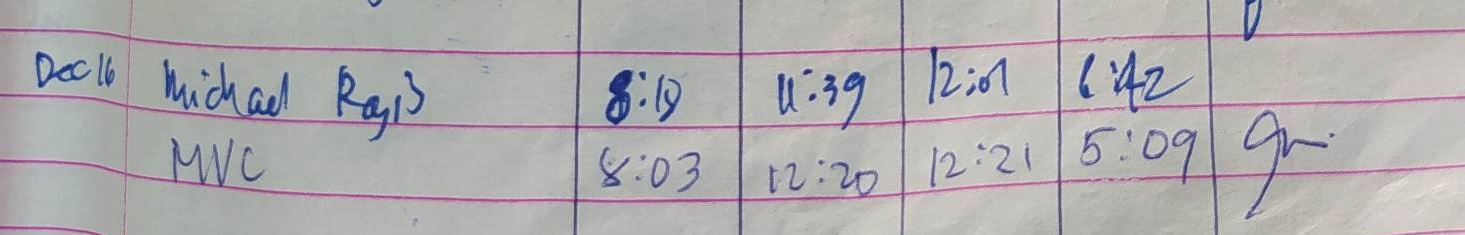 Dec 16 Michael 8:19 11:39 12:01 6:42
MVC 8:03 12:20 12:21 5:09